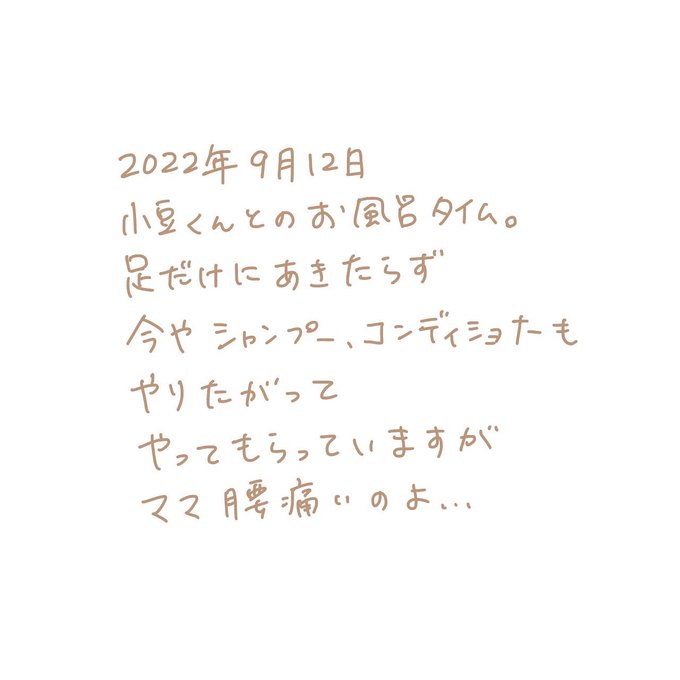 2022年9月12日
小豆くんとのお風呂タイム。
足だけにあきたらず
今やシャンプー、コンディショナーも
やりたがって
やってもらっていますが
ママ腰痛いのよ...